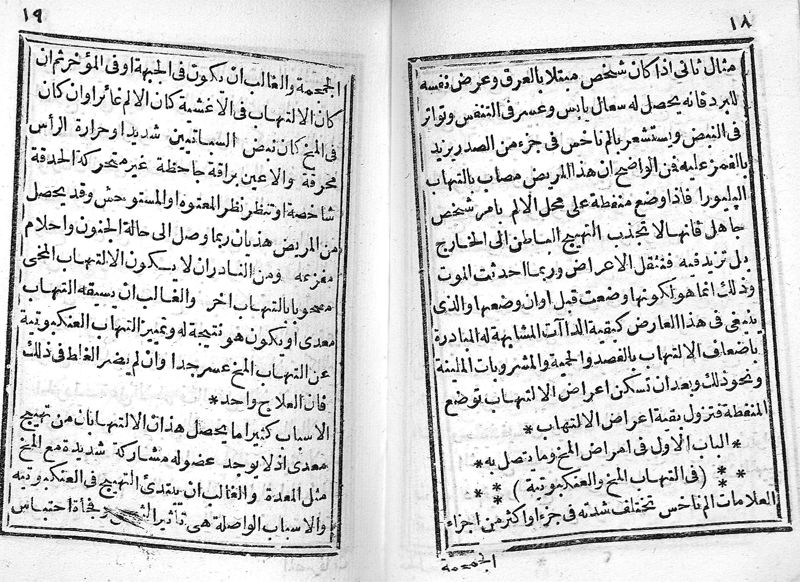 ١٨
مثال ثانى اذا كان شخص مبتلا بالعرق وعرض نفسه
للبرد فانه يحصل له سعال يابس وعسر فى التنفس وتواتر
فى النبض ويستشعر بالم ناخس فى جزء من الصدر يزيد
بالغمز عليه فمن الواضح ان هذا المريض مصاب بالتهاب
البليورا فاذا وضع منفطة على محل الالم بامر شخص
جاهل فانها لا تجذب التهيج الباطن الى الخارج
بل تزيد فيه فتثقل الاعراض وربما احدثت الموت
وذلك انما هو لكونها وضعت قبل اوان وضعها والذى
ينبغى فى هذا العارض كبقية الداآت المشابهة له المبادرة
باضعاف الالتهاب بالفصد والحمية والمشروبات الملينة
ونحو ذلك وبعد ان تسكن اعراض الالتهاب توضع
المنفطة فتزول بقية اعراض الالتهاب *
* الباب الاول فى امراض المخ وما يتصل به *
* * ( فى التهاب المخ والعنكبوتية ) * *
العلامات الم ناخس تختلف شدته فى جزء او اكثر من اجزاء
الجمجمة
١٩
الجمجمة والغالب ان يكون فى الجبهة او فى المؤخر ثم ان
كان الالتهاب فى الاغشية كان الالم غائرا وان كان
فى المخ كان نبض السباتيين شديدا وحرارة الرأس
محرقة والاعين براقة جاحظة غير متحركة الحدقة
شاخصة او تنظر نظر المعتوه او المستوحش وقد يحصل
من المريض هذيان ربما وصل الى حالة الجنون واحلام
مفزعه ومن النادر ان لا يكون الالتهاب المخى
مصحوبا بالتهاب اخر والغالب ان يسبقه التهاب
معدى او يكون هو نتيجة له وتمييز التهاب العنكبوتية
عن التهاب المخ عسر جدا وان لم يضر الغلط فى ذلك
فان العلاج واحد *
الاسباب كثيرا ما يحصل هذان الالتهابان من تهيج
معدى اذ لا يوجد عضو له مشاركة شديدة مع المخ
مثل المعدة والغالب ان يبتدئ التهيج فى العنكبوتيه
والاسباب الواصلة هى تأثير وفجأة احتباس